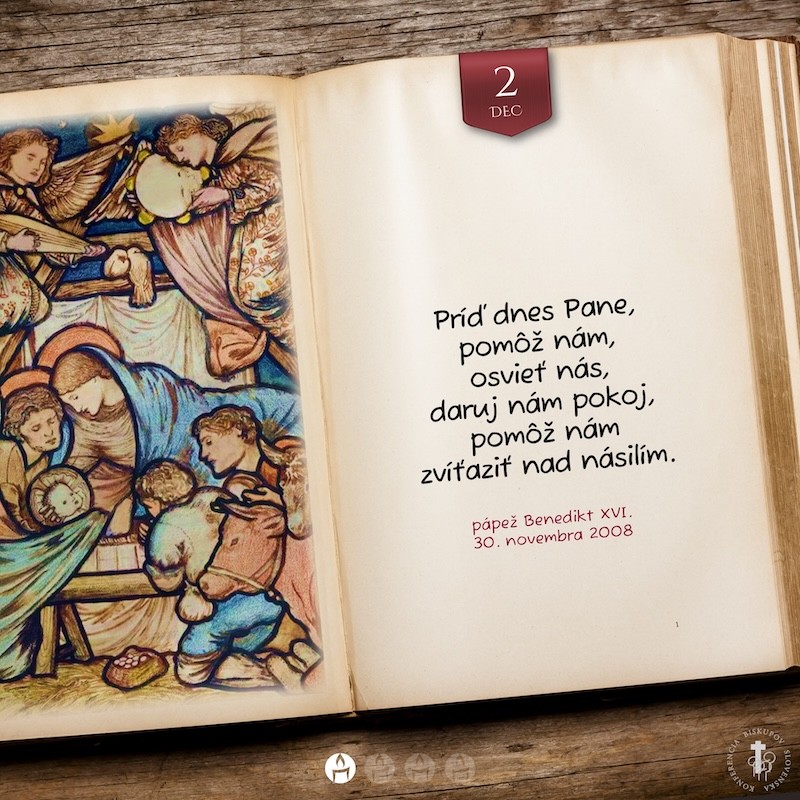 2
DEC
Príď dnes Pane,
pomôž nám,
osvieť nás,
daruj nám pokoj,
pomôž nám
zvíťaziť nad násilím.
pápež Benedikt XVI.
30. novembra 2008
1
KONFERENCIA BISKUPOV SLOVENSKA